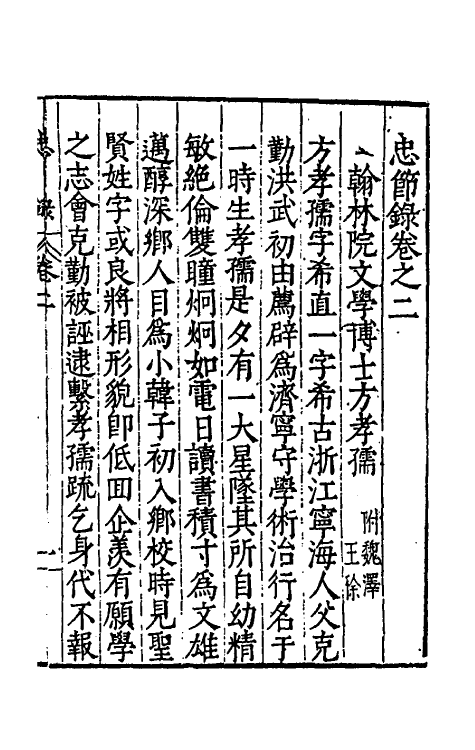 忠節錄卷之二
翰林院文學博士方孝孺 附魏澤 王稌
方孝孺字希直一字希古浙江寧海人父克
勤洪武初由薦辟爲濟寧守學術治行名于
一時生孝孺是夕有一大星墜其所自幼精
敏絶倫雙瞳炯炯如電日讀書積寸爲文雄
邁醇深鄉人目爲小韓子初入鄉校時見聖
賢姓字或良將相形貌卽低回企羨有願學
之志會克勤被誣逮繫孝孺疏乞身代不報
忠 錄 卷二 一